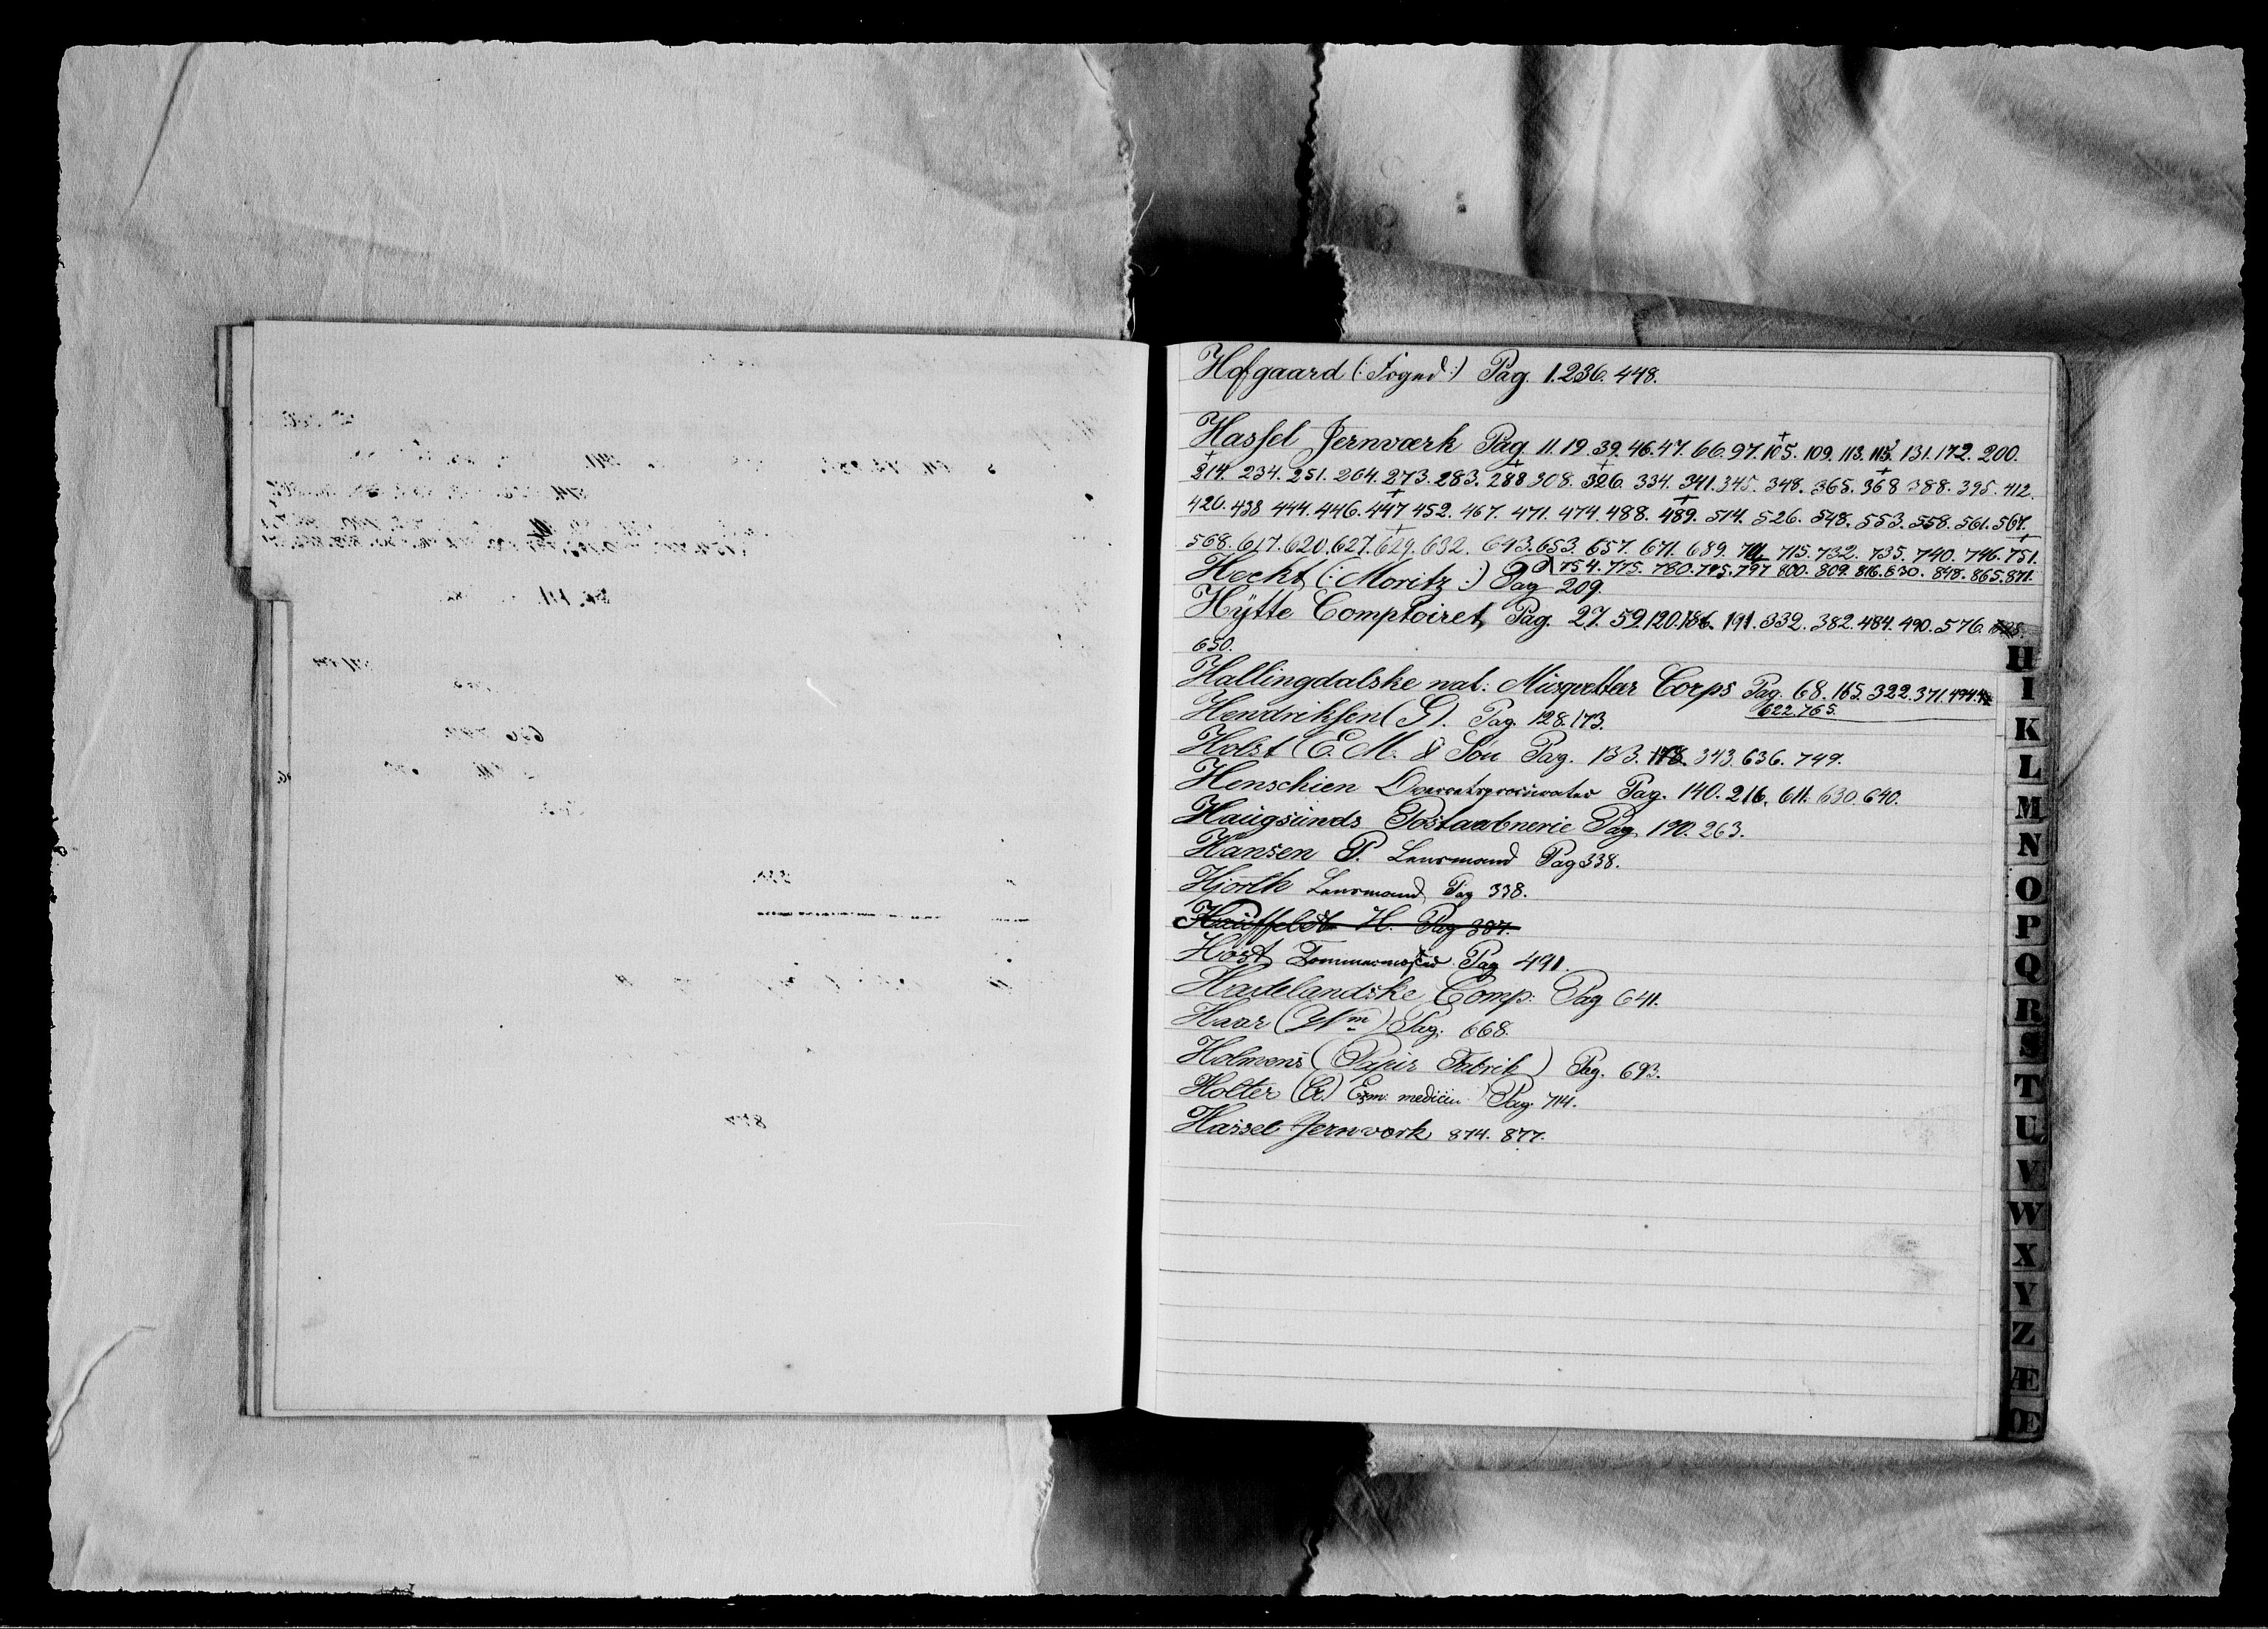 Hofgaard (: Foged :) Pag. 1. 236. 448.
Hassel Jernværk Pag. 11. 19. 39. 46. 47. 66. 97. 105. 109. 113. 115. 131. 172. 200.
214. 234. 251. 264. 273. 283. 288 308. 326. 334. 341. 345. 348. 365. 368 388. 395. 412.
420. 438 444. 446. 447 452. 467. 471. 474. 488. 489. 514. 526. 548. 553. 558. 561. 567.
568. 617. 620. 627. 629. 632. 643. 653. 657. 671. 689. 715. 732. 735. 740. 746. 751.
754. 775. 780. 795. 797 800. 809. 816. 830. 848. 865. 871.
Hecht (: Moritz :) Pag 209.
Hytte Comptoiret, Pag. 27. 59. 120. 186. 191. 332. 382. 484. 490. 576.
650.
Hallingdalske nat: Musqvetteer Corps Pag. 68. 165. 322. 371.
622. 765.
Hendriksen (G). Pag. 128. 173.
Holst (E. M. & Søn Pag. 133. 178. 343. 636. 749.
Henschien Overretsprocurator Pag. 140. 216. 611. 630. 640.
Haugsunds Postaabnerie Pag. 190. 263.
Hansen P. Lensmand Pag 338.
Hjorth Lensmand Pag 338.
Hauffeldt H. Pag 387.
Høst Tømmermester Pag 491.
Hadelandske Comp. Pag 641.
Haar (Wm) Pag. 668.
Holmens (Papir Fabrik) Pag. 693.
Holter (Cr.) Exm. medicin Pag. 714.
Hassel Jernværk 874. 877.
H
I
K
L
M
N
O
P
Q
R
S
T
U
V
W
X
Y
Z
Æ
Œ